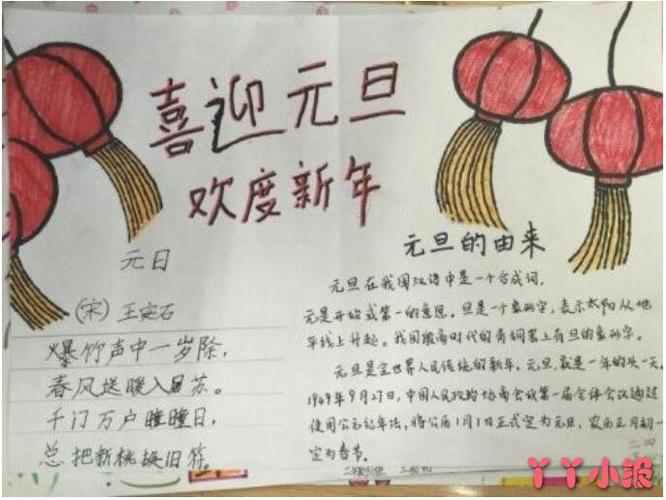 喜迎元旦
欢度新年
元日
(宋)王安石
爆竹声中一岁除,
春风送暖入屠苏。
千门万户曈曈日,
总把新桃换旧符。
元旦的由来
元旦在我国汉语中是一个合成词.
元是开始或第一的意思。旦是一个象形字,表示太阳从地
平线上升起。我国殷商时代的青铜器上有旦的象形字。
元旦是全世界人民传统的新年。元旦,就是一年的头一天。
1949年9月27日,中国人民政协商会议第一届全体会议通过
使用公元纪年法,将公历1月1日正式定为元旦,农历正月初一
定为春节。
丫丫小淑